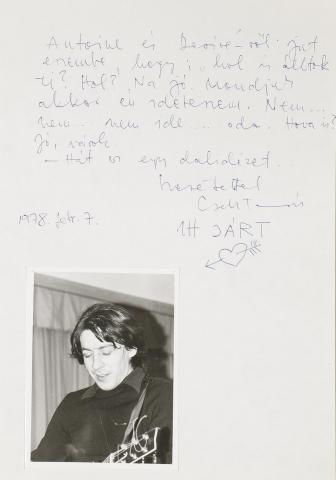 Antoine és Desiré-ről jut
eszembe, hogy: „hol is álltok
ti? Hol? Na jó. Mondjuk
akkor én ideteszem. Nem...
nem... nem ide... oda. Hova is?
Jó, várok.
– Hát ez egy
szeretettel
1978. feb. 7.
ITT JÁRT